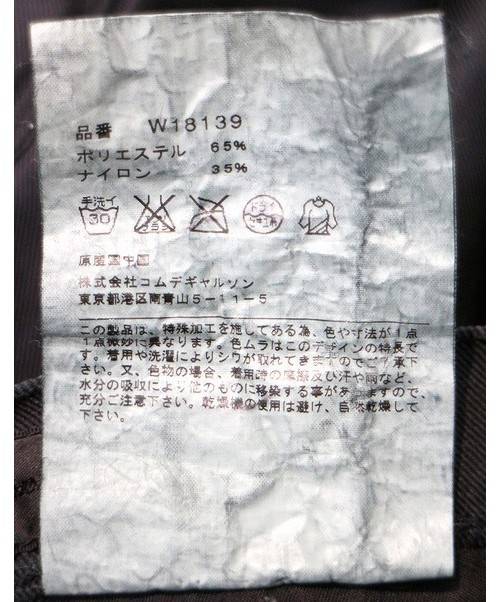 品番 W18139
ポリエステル 65%
ナイロン 35%
手洗イ
30
ドライ
原産国中国
株式会社コムデギャルソン
東京都港区南青山5-11-5
この製品は、特殊加工を施してある為、色や寸法が1点
1点微妙に異なります。色ムラはこのデザインの特長で
す。着用や洗濯によりシワが取れてきますのでご了承下
さい。又、色物の場合、着用時の摩擦及び汗や雨など、
水分の吸収により他のものに移染する事がありますので、
充分ご注意下さい。乾燥機の使用は避け、自然乾燥して
下さい。